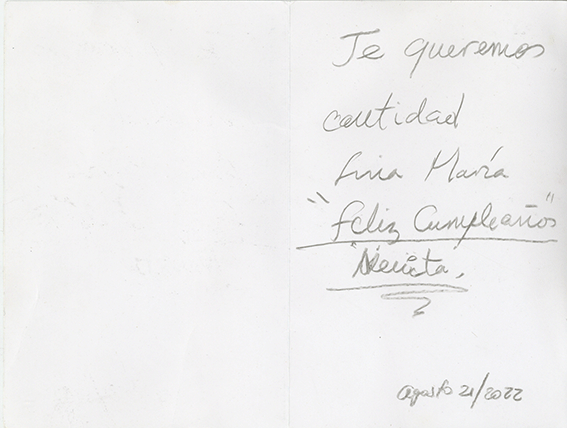 Te queremos
cantidad
Lina María
"Feliz Cumpleaños"
Nenita.
agosto 21/2022